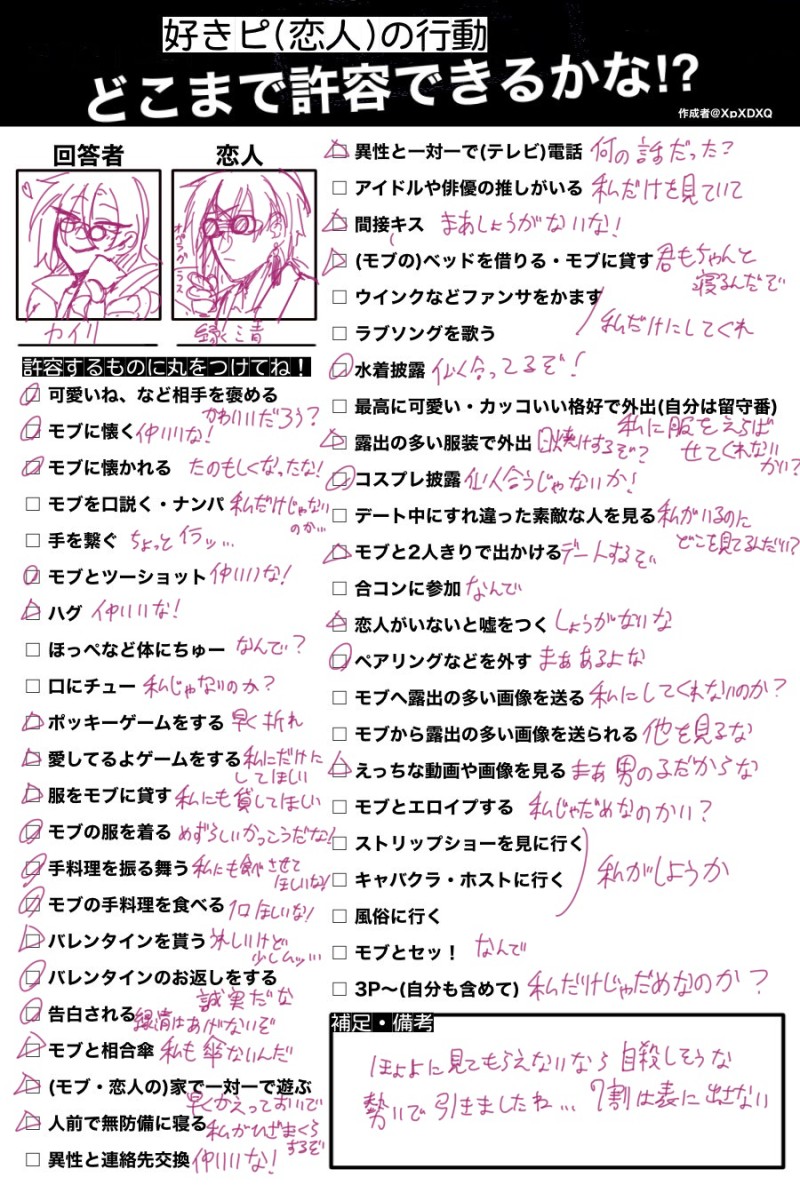 好きピ(恋人)の行動
どこまで許容できるかな!?
作成者@XpXDXQ
回答者
恋人
オペラグラス
カイリ
許容するものに丸をつけてね!
可愛いね、など相手を褒める
かわいいだろう?
モブに懐く 仲いいな!
モブに懐かれる たのもしくなったな!
モブを口説く・ナンパ 私だけじゃないのか…
手を繋ぐ ちょっとイラッ…
モブとツーショット 仲いいな!
ハグ 仲いいな!
ほっぺなど体にちゅー なんで?
口にチュー 私じゃないのか?
ポッキーゲームをする 早く折れ
愛してるよゲームをする 私にだけに
してほしい
服をモブに貸す 私にも貸してほしい
モブの服を着る めずらしいかっこうだな!
手料理を振る舞う 私にも食べさせて
ほしいな!
モブの手料理を食べる 1口ほしいな!
バレンタインを貰う 嬉しいけど
少しムッ…
バレンタインのお返しをする
誠実だな
告白される 銀清はあげないぞ
モブと相合傘 私も傘ないんだ
(モブ・恋人の)家で一対一で遊ぶ
早くかえっておいで
人前で無防備に寝る 私がひざまくら
するぞ
異性と連絡先交換 仲いいな!
異性と一対一で(テレビ)電話 何の話だった?
アイドルや俳優の推しがいる 私だけを見ていて
間接キス まあしょうがないな!
(モブの)ベッドを借りる・モブに貸す 君もちゃんと
寝るんだぞ
ウインクなどファンサをかます
ラブソングを歌う
私だけにしてくれ
水着披露 似合ってるぞ!
最高に可愛い・カッコいい格好で外出(自分は留守番)
私に服をえらば
せてくれない
かい?
露出の多い服装で外出 日焼けするぞ?
コスプレ披露 似合うじゃないか!
デート中にすれ違った素敵な人を見る 私がいるのに
どこを見てるんだい?
モブと2人きりで出かける デートするぞ
合コンに参加 なんで
恋人がいないと嘘をつく しょうがないな
ペアリングなどを外す まぁあるよな
モブへ露出の多い画像を送る 私にしてくれないのか?
モブから露出の多い画像を送られる 他を見るな
えっちな動画や画像を見る まぁ男の子だからな
モブとエロイプする 私じゃだめなのかい?
ストリップショーを見に行く
キャバクラ・ホストに行く
風俗に行く
私がしようか
モブとセッ! なんで
3P〜(自分も含めて) 私だけじゃだめなのか?
補足・備考
見てもらえないなら自殺しそうな
勢いで引きましたね… 7割は表に出せない